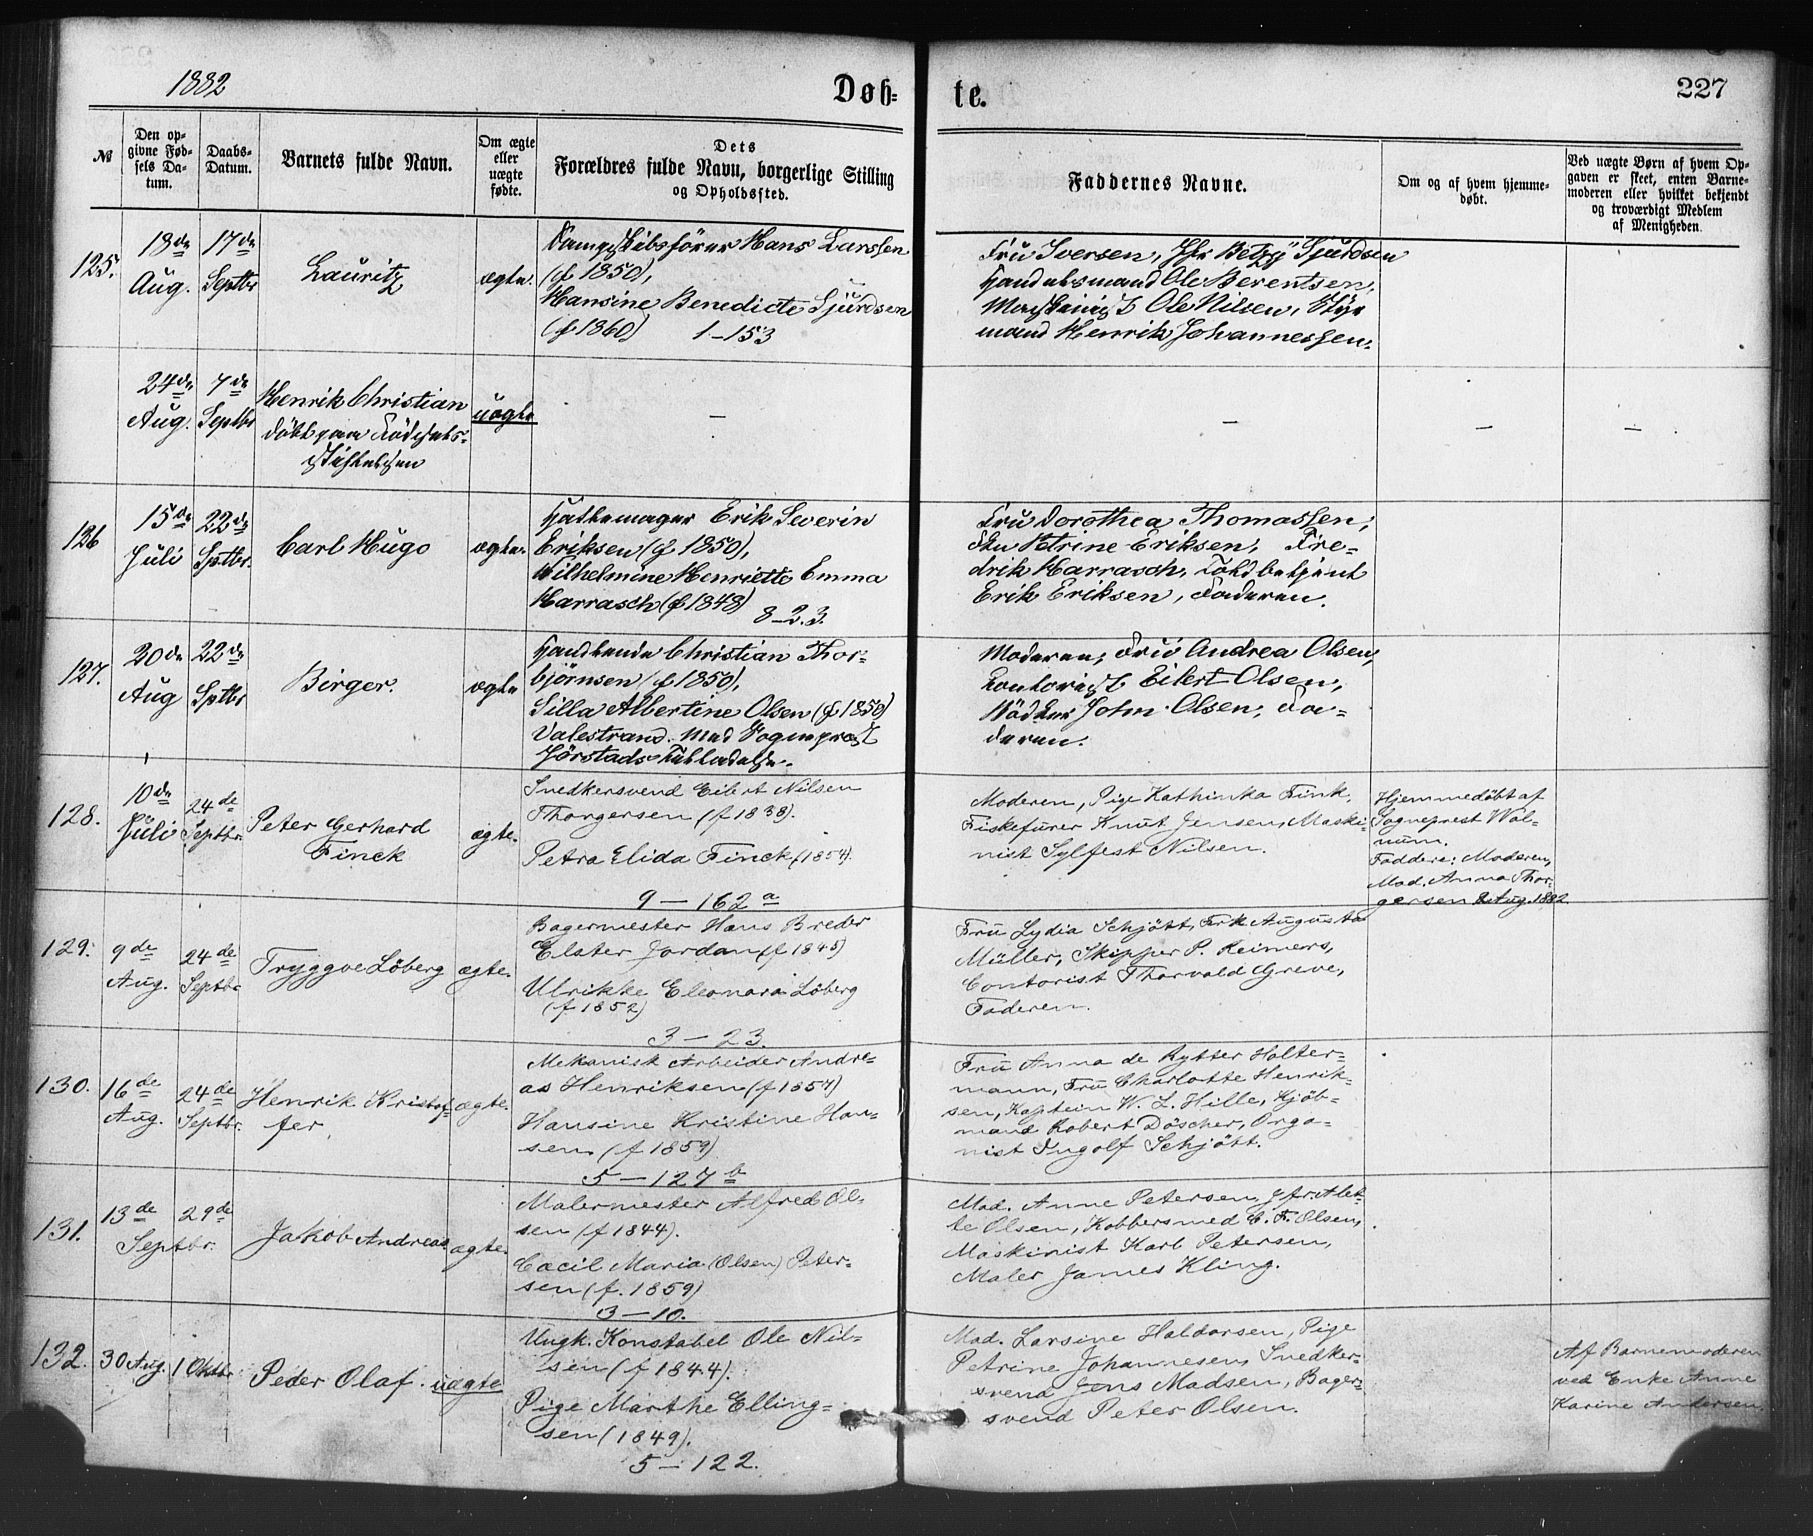 1882
Døb=
te.
227
№
Den op=
givne Fød=
sels Da=
tum.
Daabs=
Datum.
Barnets fulde Navn.
Om ægte
eller
uægte
fødte.
Dets
Forældres fulde Navn, borgerlige Stilling
og Opholdssted.
Faddernes Navne.
Om og af hvem hjemme=
døbt.
Ved uægte Børn af hvem Op=
gaven er skeet, enten Barne=
moderen eller hvilket bekjendt
og troværdigt Medlem
af Menigheden.
125.
18de
Aug.
17de
Septbr
Lauritz
ægte.
Dampskibsfører Hans Larssen
(f 1850),
Hansine Benedicte Sjurdsen
(f 1860) 1-153
Fru Iversen, Jfr Betzy Sjurdsen
Handelsmand Ole Berentsen,
Maskinist Ole Nilsen, Styr
mand Henrik Johannessen.
24de
Aug.
7de
Septbr
Henrik Christian
døbt paa Fødsels=
stiftelsen
uægte
—
—
—
—
126
15de
Juli
22de
Sptbr.
Carl Hugo
ægte.
Hattemager Erik Severin
Eriksen (f 1850),
Wilhelmine Henriette Emma
Harrasch (f 1848) 8-2.3.
Fru Dorothea Thomassen,
Petrine Eriksen, Fre=
drik Harrasch, Toldbetjent
Erik Eriksen, Faderen.
127.
20de
Aug
22de
Sptbr
Birger.
ægte
Handlende Christian Thor=
bjørnsen (f 1850),
Silla Albertine Olsen (f 1850)
Valestrand. Med Sogneprest
Jørstads Tilladelse.
Moderen, Fru Andrea Olsen,
Kontorist Eilert Olsen,
Bødker John Olsen, Fa=
deren.
128.
10de
Juli
24de
Septbr.
Peter Gerhard
Finck
ægte.
Snedkersvend Eilert Nilsen
Thorgersen (f 1838).
Petra Elida Finck (1854).
9 — 162 a
Moderen, Pige Kathinka Fink,
Fiskefürer Knut Jensen, Maski=
nist Sylfest Nilsen.
Hjemmedöbt af
Sogneprest Wal=
num.
Faddere: Moderen,
Mad. Anna Thor=
gersen 2 Aug. 1882
129.
9de
Aug.
24de
Septbr.
Tryggve Löberg
ægte.
Bagermester Hans Breder
Elster Jordan (f 1845)
Ulrikke Eleonora Löberg
(f 1852)
3 — 23.
Fru Lydia Schjött, Frk Augusta
Müller, Skipper P. Reimers,
Contorist Thorvald Greve,
Faderen.
130.
16de
Aug.
24de
Septbr.
Henrik Kristof=
fer.
ægte.
Mekanisk Arbeider Andre=
as Henriksen (f 1854)
Hansine Kristine Han=
sen (f 1859)
5 — 127 b
Fru Anna de Rytter Holter=
mann, Fru Charlotte Henrik=
sen, Kaptein W. L. Hille, Kjöb=
mand Robert Döscher, Orga=
nist Ingolf Schjött.
131.
13de
Septbr.
29de
Jakob Andreas
ægte.
Malermester Alfred Ol=
sen (f 1844).
Cacil Maria (Olsen) Peter=
sen (f. 1859)
3 — 10.
Mad. Anne Petersen, Jfr. Alet=
te Olsen, Kobbersmed C. F. Olsen,
Maskinist Karl Petersen,
Maler James Kling.
132.
30 Aug.
1 Oktbr.
Peder Olaf.
uægte
Ungk. Konstabel Ole Nil=
sen (f 1844).
Pige Marthe Elling=
sen (1849).
5 — 122.
Mad. Larsine Haldorsen, Pige
Petrine Johannesen, Snedker=
svend Jens Madsen, Bager=
svend Peter Olsen.
Af Barnemoderen
ved Enke Anne
Karine Andersen.